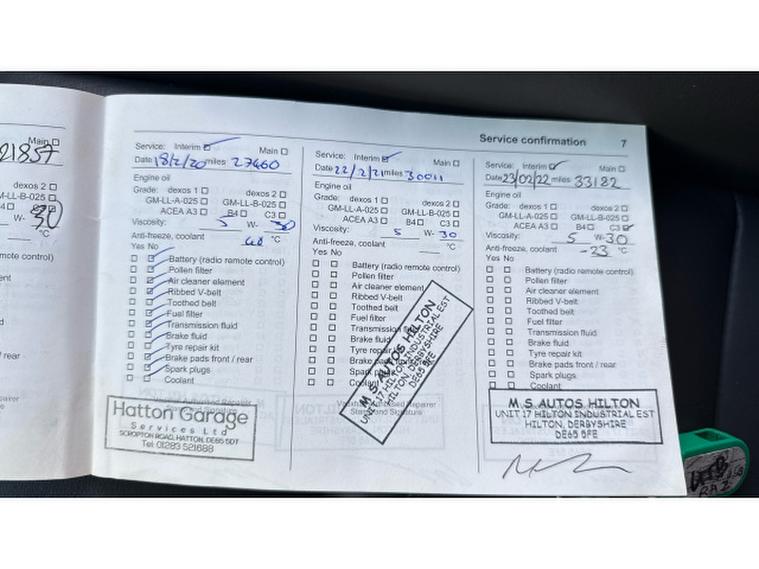 Service confirmation 7
Main
21857
dexos 2
GM-LL-B-025
W- 30
°C
mote control)
/ rear
Service: Interim ✓ Main
Date 18/2/20 miles 27460
Engine oil
Grade: dexos 1 dexos 2
GM-LL-A-025 GM-LL-B-025
ACEA A3 B4 C3
Viscosity: 5 W- 30
Anti-freeze, coolant °C
Yes No
Battery (radio remote control)
Pollen filter
Air cleaner element
Ribbed V-belt
Toothed belt
Fuel filter
Transmission fluid
Brake fluid
Tyre repair kit
Brake pads front / rear
Spark plugs
Coolant
Hatton Garage
Services Ltd
SCROPTON ROAD, HATTON, DE65 5DT
Tel: 01283 521688
Service: Interim ✓ Main
Date 22/2/21 miles 30011
Engine oil
Grade: dexos 1 dexos 2
GM-LL-A-025 GM-LL-B-025
ACEA A3 B4 C3
Viscosity: 5 W- 30
Anti-freeze, coolant °C
Yes No
Battery (radio remote control)
Pollen filter
Air cleaner element
Ribbed V-belt
Toothed belt
Fuel filter
Transmission fluid
Brake fluid
Tyre repair
Brake
Spark
Coolant
M.S. AUTOS HILTON
UNIT 17 HILTON INDUSTRIAL EST
HILTON, DERBYSHIRE
DE65 5FE
Service: Interim ✓ Main
Date 23/02/22 miles 33182
Engine oil
Grade: dexos 1 dexos 2
GM-LL-A-025 GM-LL-B-025
ACEA A3 B4 C3 ✓
Viscosity: 5 W-30
Anti-freeze, coolant -23 °C
Yes No
Battery (radio remote control)
Pollen filter
Air cleaner element
Ribbed V-belt
Toothed belt
Fuel filter
Transmission fluid
Brake fluid
Tyre repair kit
Brake pads front / rear
Spark plugs
Coolant
M.S. AUTOS HILTON
UNIT 17 HILTON INDUSTRIAL EST
HILTON, DERBYSHIRE
DE65 5FE